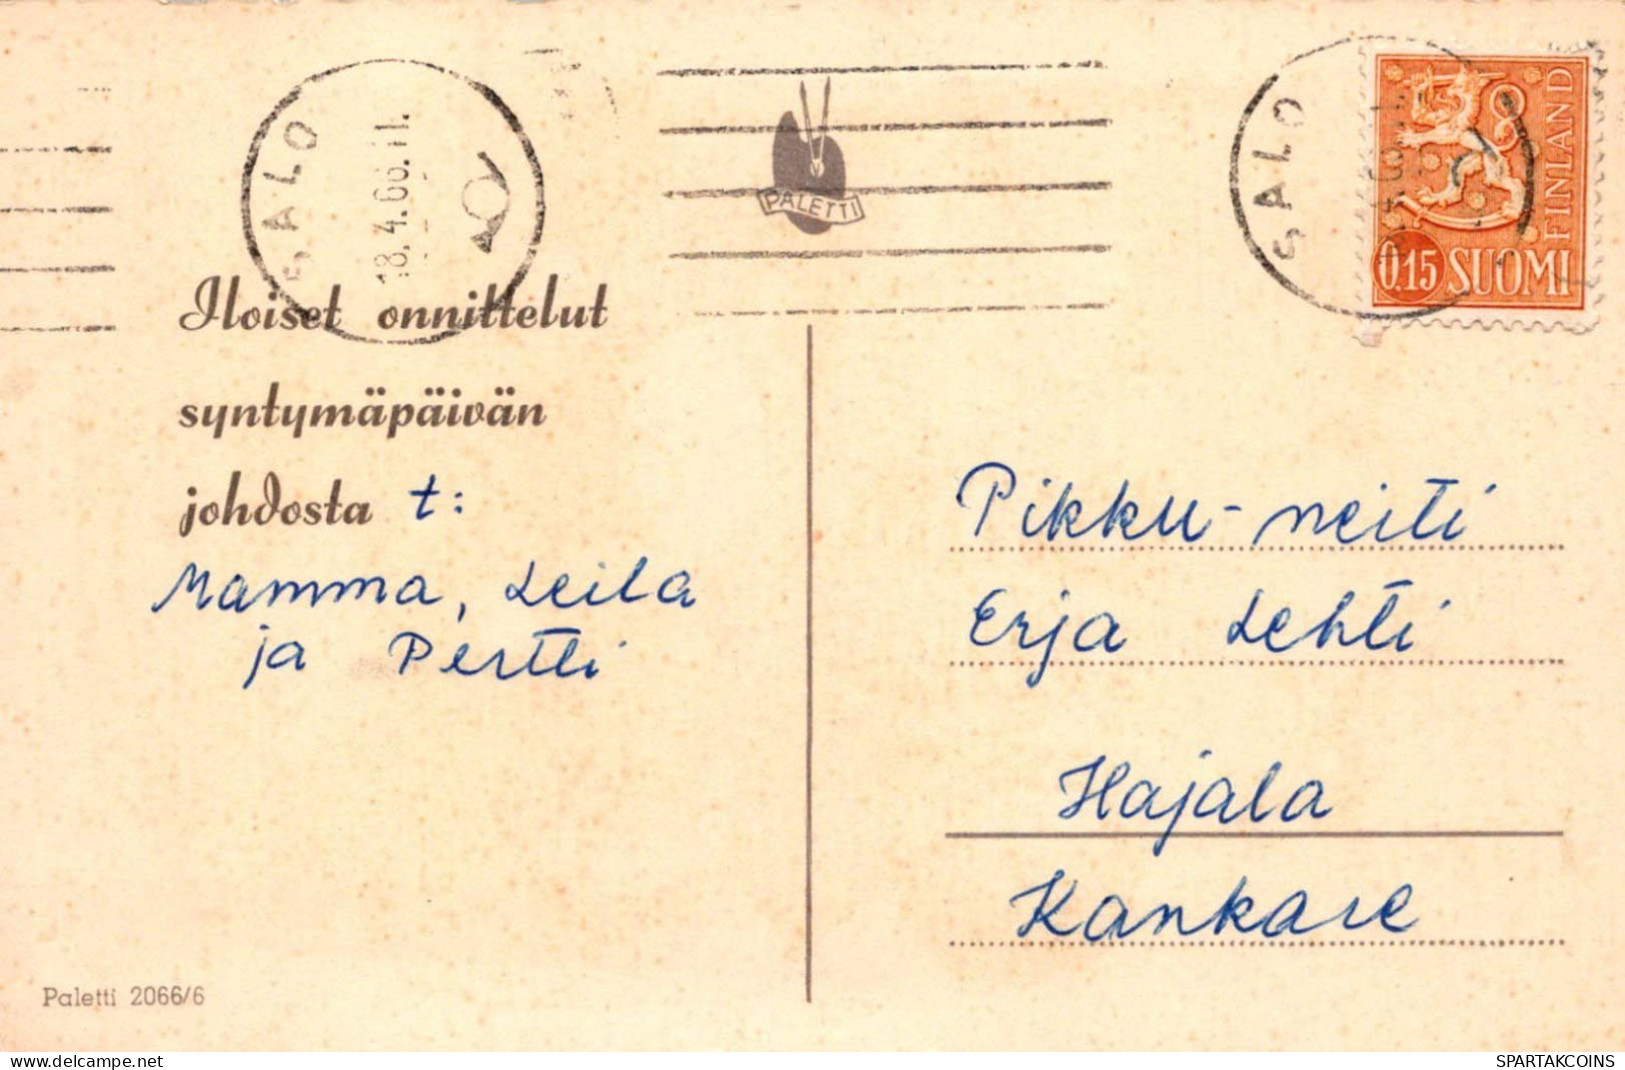 SALO
18.4.66.11.
PALETTI
SALO
FINLAND
0.15 SUOMI
Iloiset onnittelut
syntymäpäivän
johdosta t:
Mamma, Leila
ja Pertti
Pikku-neiti
Erja Lehti
Hajala
Kankare
Paletti 2066/6
delcampe.net
SPARTAKCOINS